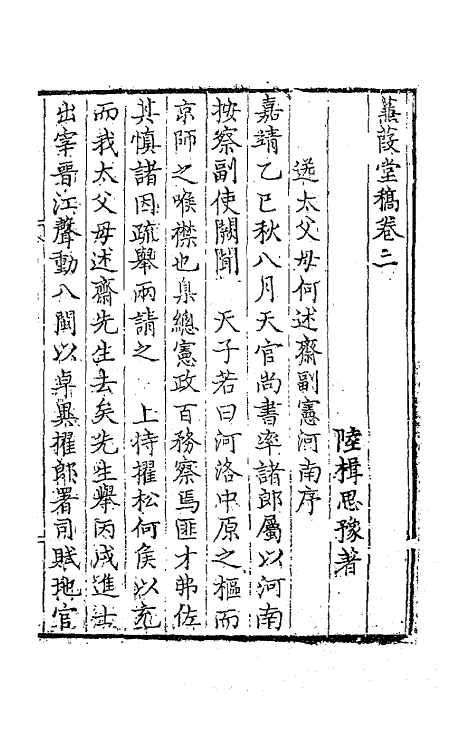 蒹葭堂稿卷三
陸楫思豫著
送太父母何述齋副憲河南序
嘉靖乙巳秋八月天官尚書率諸郎屬以河南
按察副使闕聞　天子若曰河洛中原之樞而
京師之喉襟也臬總憲政百務察焉匪才弗佐
其慎諸因疏舉兩請之　上特擢松何侯以充
而我太父母述齋先生去矣先生舉丙戌進士
出宰晉江聲動八閩以卓異擢郎署司賦地官